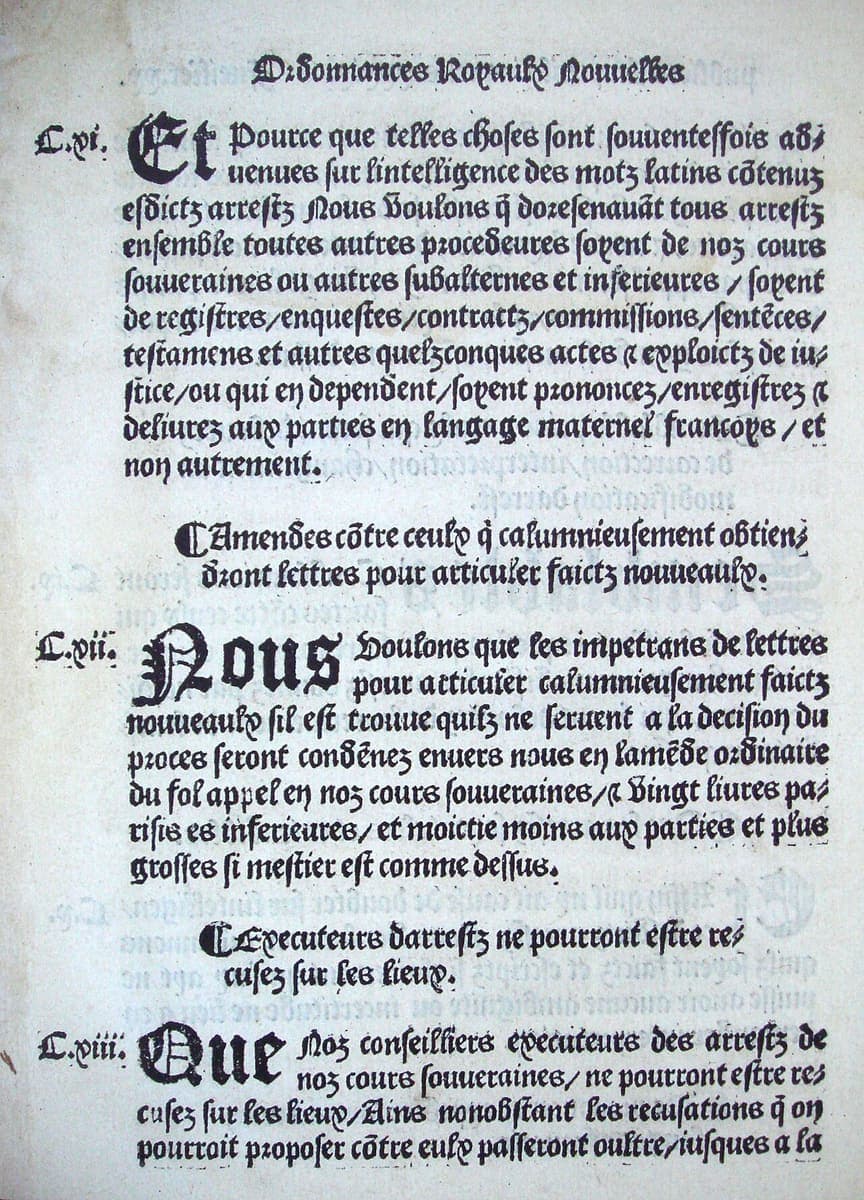 Ordonnances Royaulx Nouuelles
C.xi. Et Pource que telles choses sont souuenteffois ad⸗
uenues sur lintelligence des motz latins cõtenuz
esdictz arrestz Nous Voulons q̃ doresenauãt tous arrestz
ensemble toutes autres procedeures soyent de noz cours
souueraines ou autres subalternes et inferieures / soyent
de registres/enquestes/contractz/commissions/sentẽces/
testamens et autres quelzconques actes ⁊ exploictz de iu⸗
stice/ou qui en dependent/soyent prononcez/enregistrez ⁊
deliurez aux parties en langage maternel francoys / et
non autrement.
¶Amendes cõtre ceulx q̃ calumnieusement obtien⸗
dront lettres pour articuler faictz nouueaulx.
C.xii. Nous Voulons que les impetrans de lettres
pour articuler calumnieusement faictz
nouueaulx sil est trouue quilz ne seruent a la decision du
proces seront condẽnez enuers nous en lamẽde ordinaire
du fol appel en noz cours souueraines/⁊ Vingt liures pa⸗
risis es inferieures/ et moictie moins aux parties et plus
grosses si mestier est comme dessus.
¶Executeurs darrestz ne pourront estre re⸗
cusez sur les lieux.
C.xiii. Que Noz conseilliers executeurs des arrestz de
noz cours souueraines/ ne pourront estre re⸗
cusez sur les lieux/Ains nonobstant les recusations q̃ on
pourroit proposer cõtre eulx passeront oultre/iusques a la